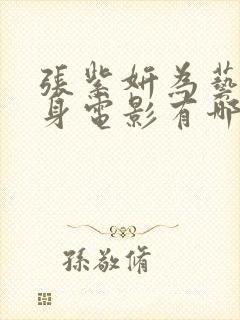 張紫妍為藝
身電影有哪
孫敬脩